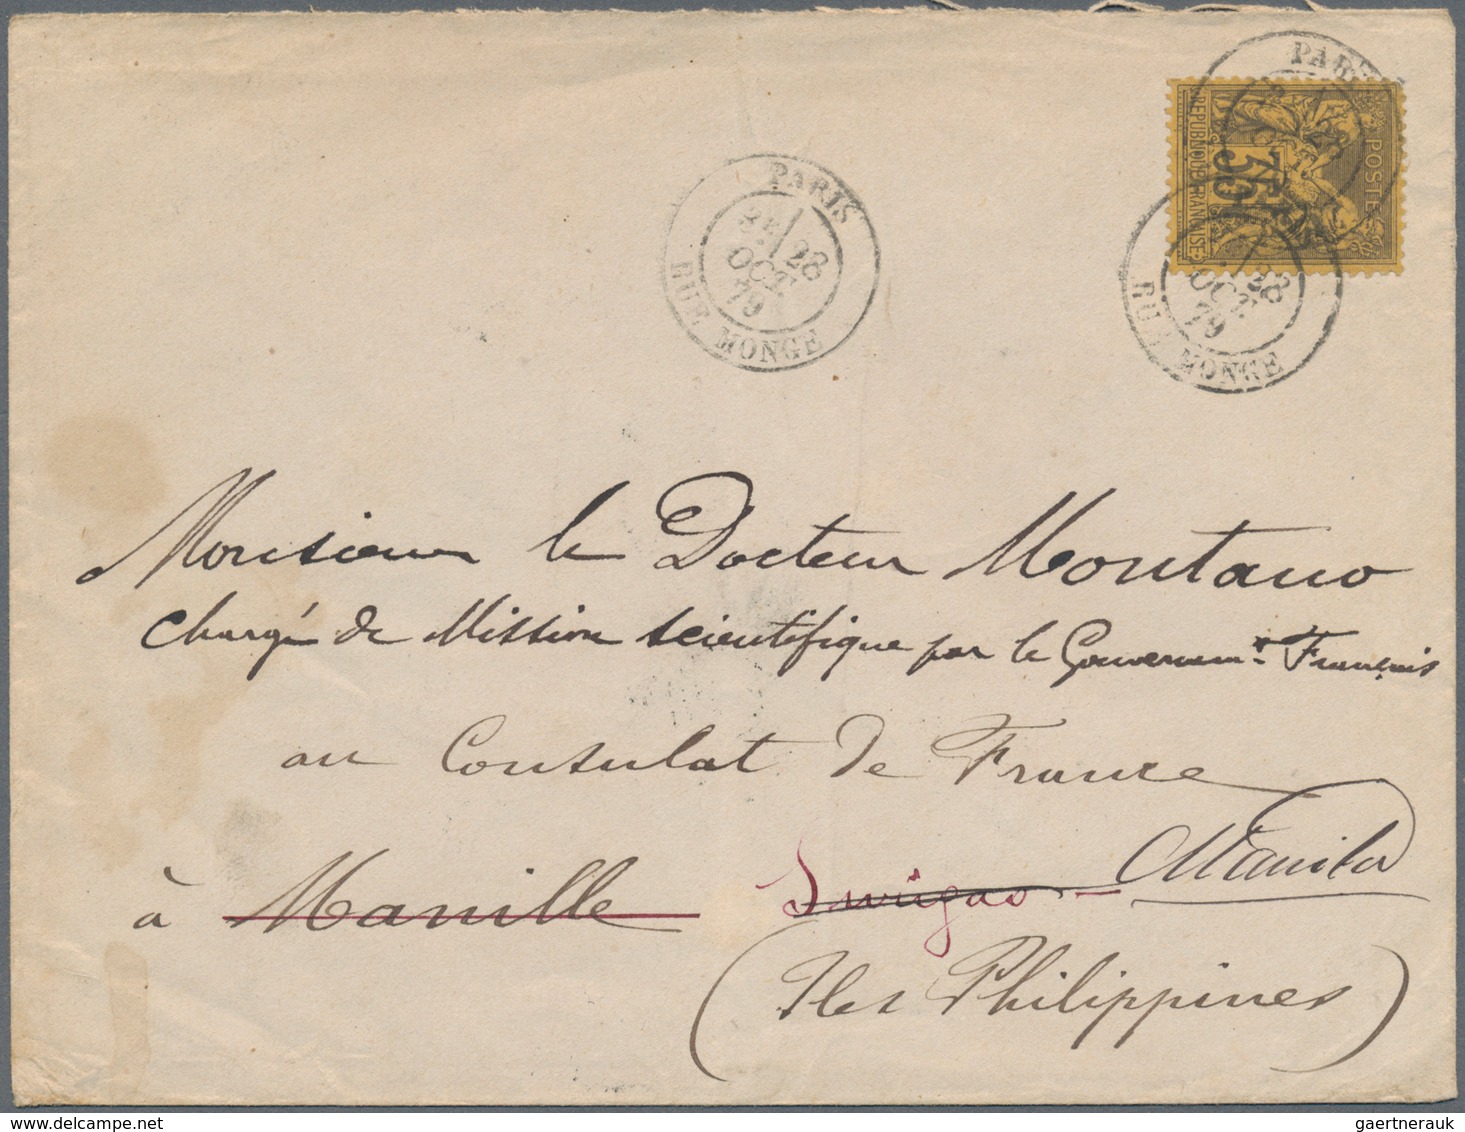 PARIS
3E / 28
OCT.
79
RUE MONGE
PARIS
28
POSTES
35
REPUBLIQUE FRANÇAISE
28
OCT.
79
RUE MONGE
Monsieur le Docteur Montano
Chargé de Mission scientifique par le Gouvernemt Français
au Consulat de France
à Manille Surigao - Manila
(Iles Philippines)
gaertnerauk@delcampe.net